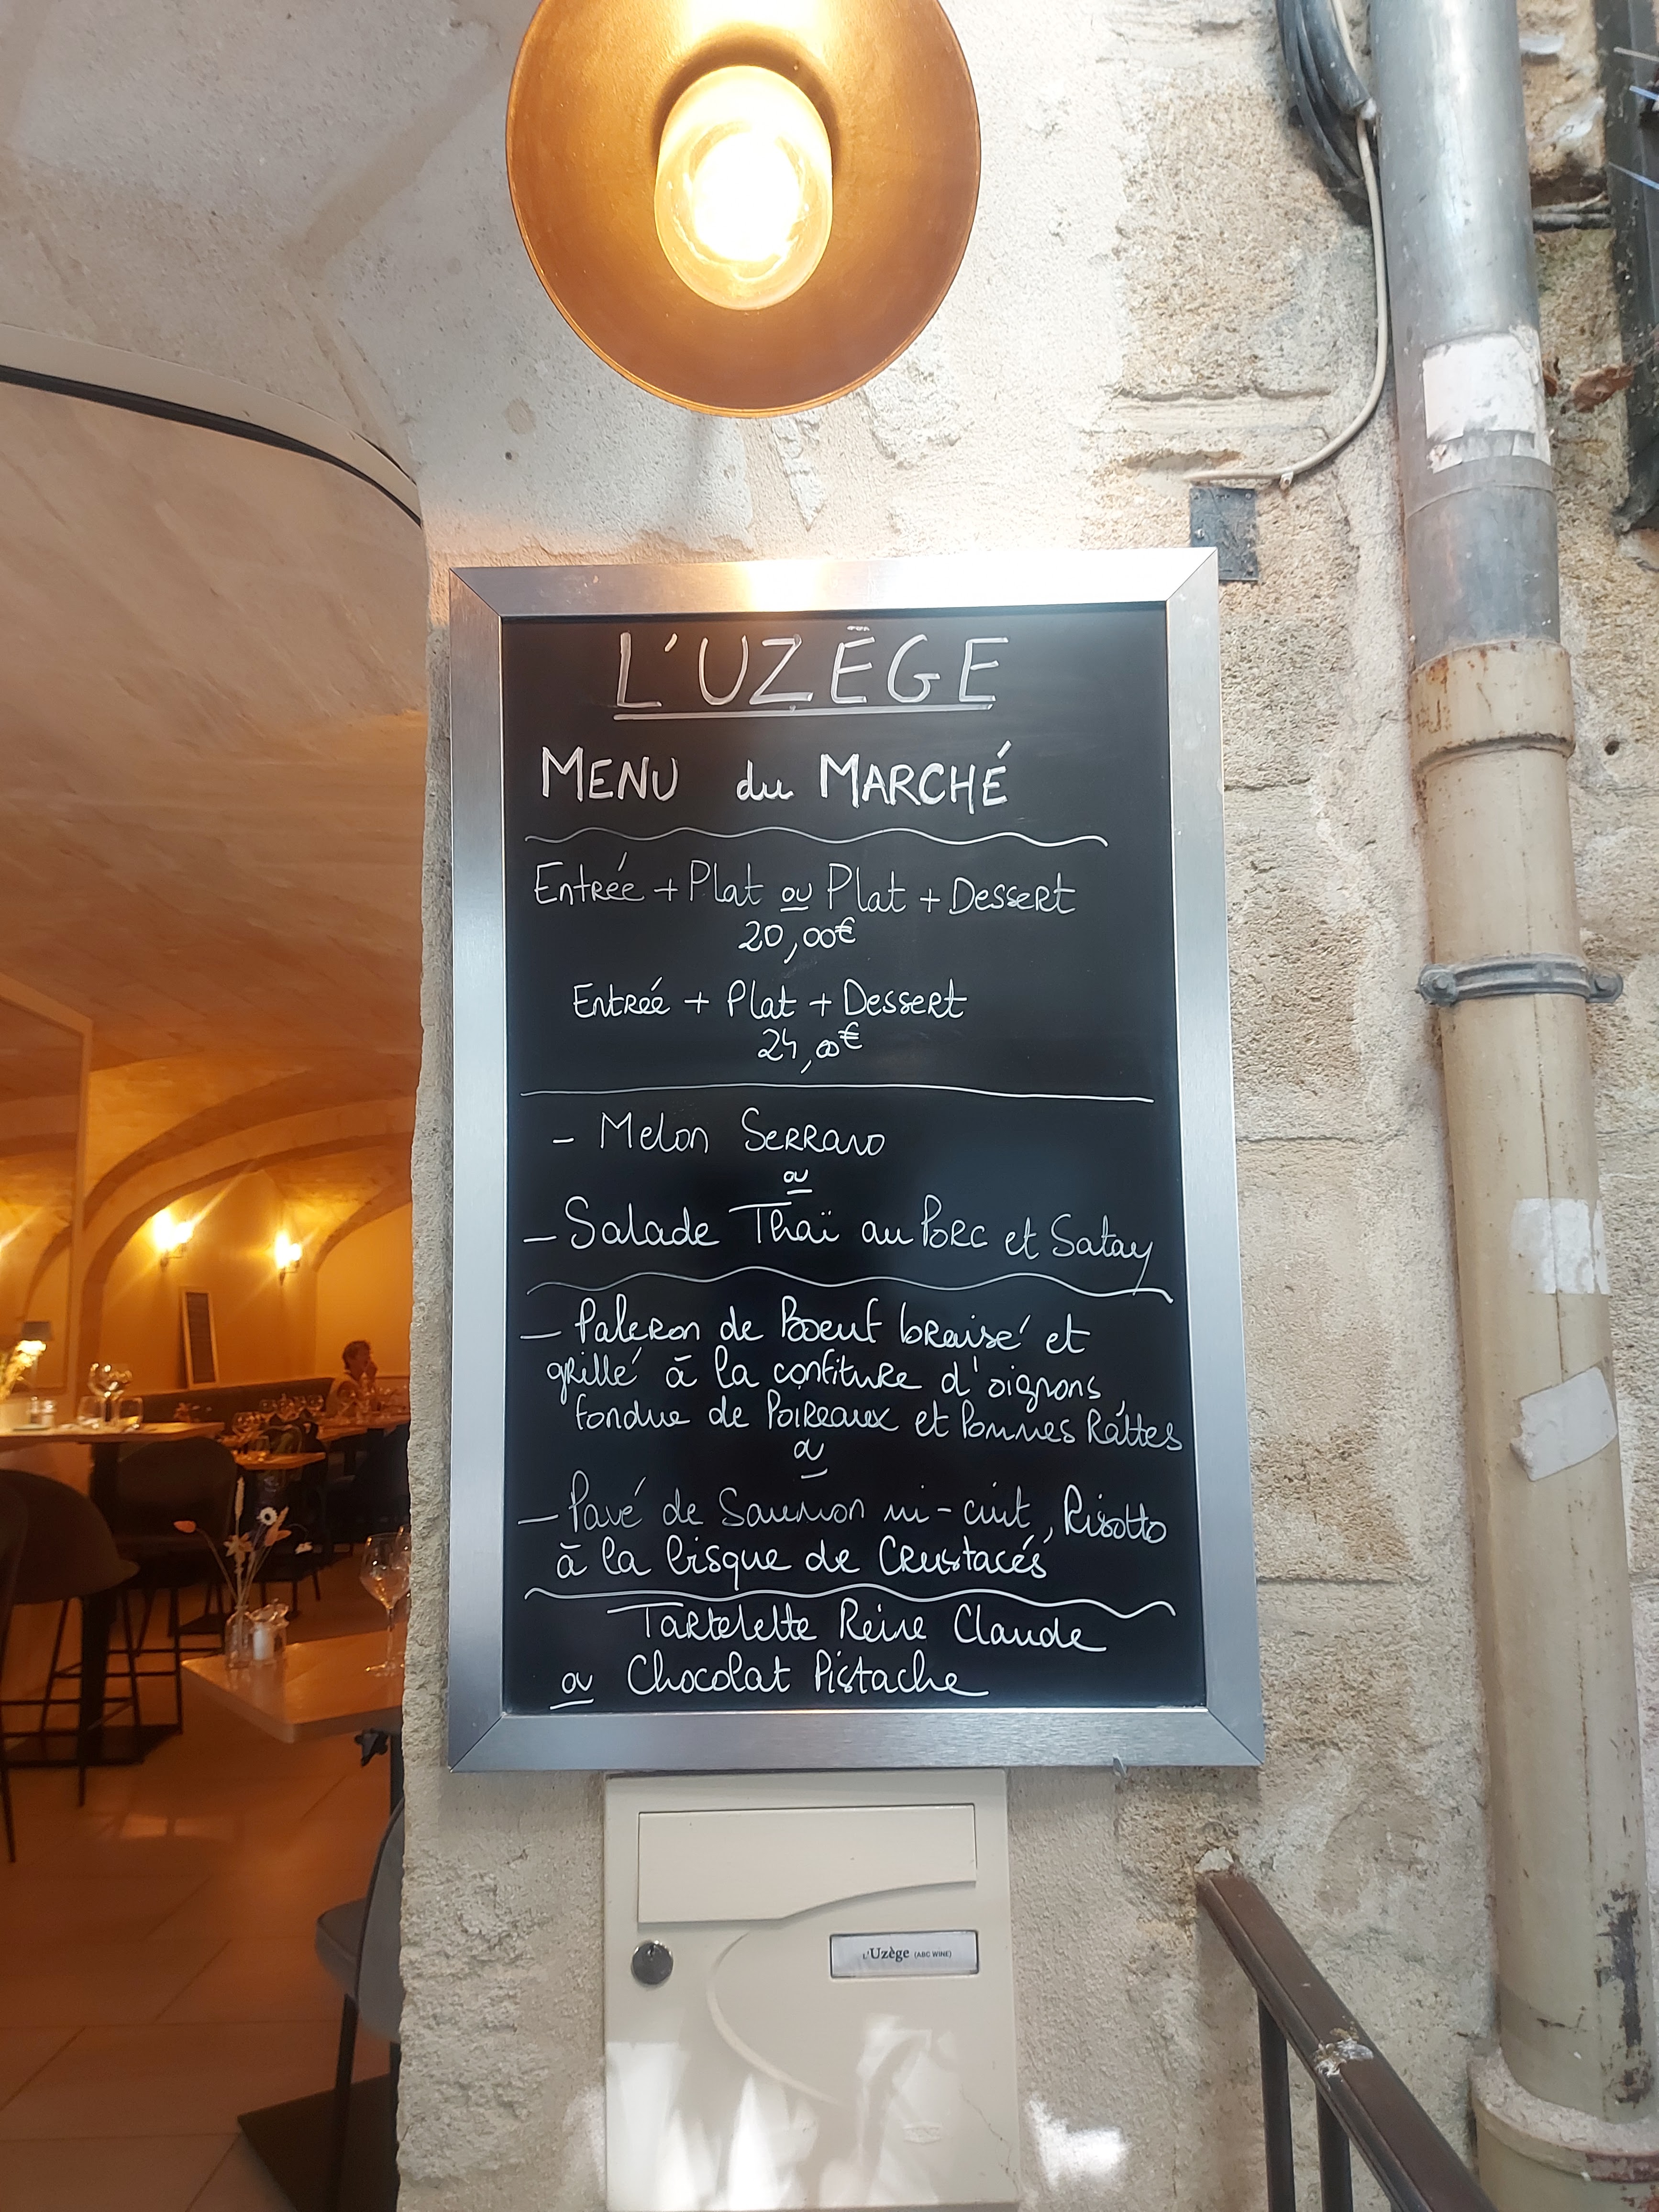 L'UZÈGE
MENU du MARCHÉ
Entrée + Plat ou Plat + Dessert
20,00€
Entrée + Plat + Dessert
24,00€
- Melon Serrano
ou
- Salade Thaï au Porc et Satay
- Paleron de Boeuf braisé et
grillé à la confiture d'oignons
fondue de Poireaux et Pommes Rattes
ou
- Pavé de Saumon mi-cuit, Risotto
à la bisque de Crustacés
Tartelette Reine Claude
ou Chocolat Pistache
L'Uzège (ABC WINE)